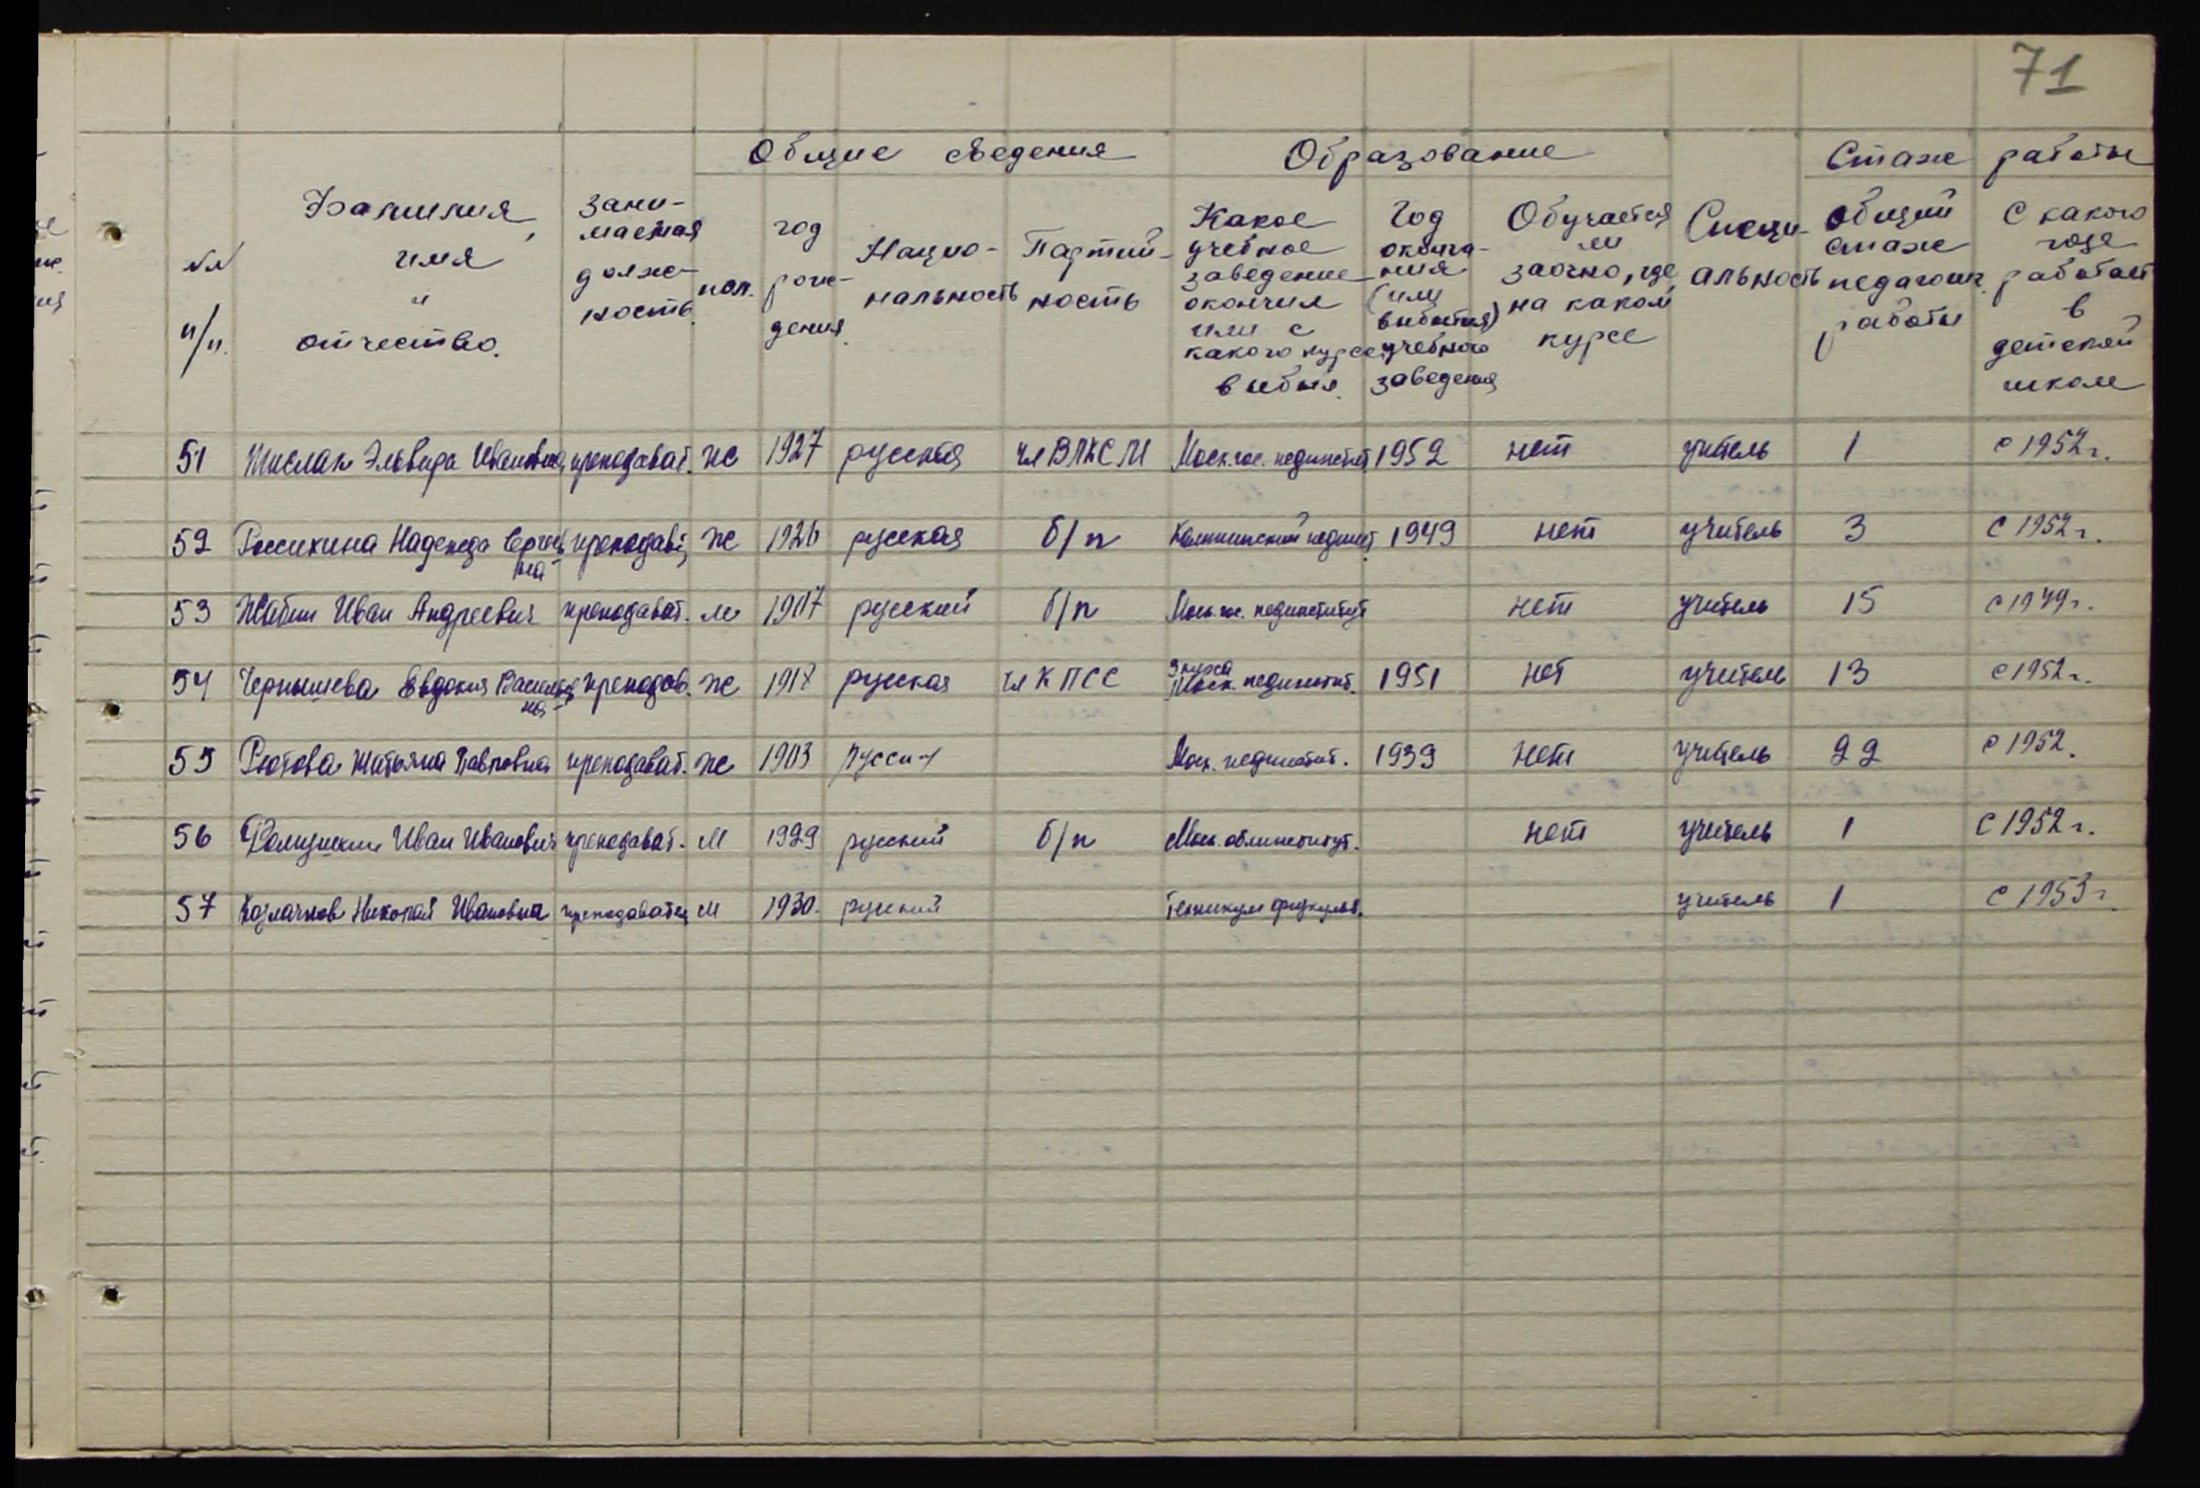 71
Общие сведения Образование Стаж работы
№№ п/п. Фамилия, имя и отчество. Занимаемая должность пол. год рождения. Национальность Партийность Какое учебное заведение окончил или с какого курса выбыл. Год окончания (или выбытия) учебного заведения Обучается ли заочно, где, на каком курсе Специальность Общий стаж педагогич. работы С какого года работает в детской школе
51 Эльвира Ивановна преподават. ж 1927 русская чл ВЛКСМ Моск. гос. пединстит 1952 нет учитель 1 с 1952 г.
52 Россихина Надежда Сергеевна преподават. ж 1926 русская б/п Калининский пединст. 1949 нет учитель 3 с 1952 г.
53 Жабин Иван Андреевич преподават. м 1907 русский б/п Моск. гос. пединститут нет учитель 15 с 1949 г.
54 Чернышева Евдокия Васильевна преподав. ж русская чл КПСС 3 курса Моск. пединстит. 1951 нет учитель 13 с 1952 г.
55 Татьяна Павловна преподават. ж 1903 русск Моск. пединстит. 1939 нет учитель 22 с 1952.
56 Иван Иванович преподават. М 1929 русский б/п Моск. облинститут. нет учитель 1 с 1952 г.
57 Николай преподаватель М 1930. русский Техникум физкульт. учитель 1 с 1953 г.